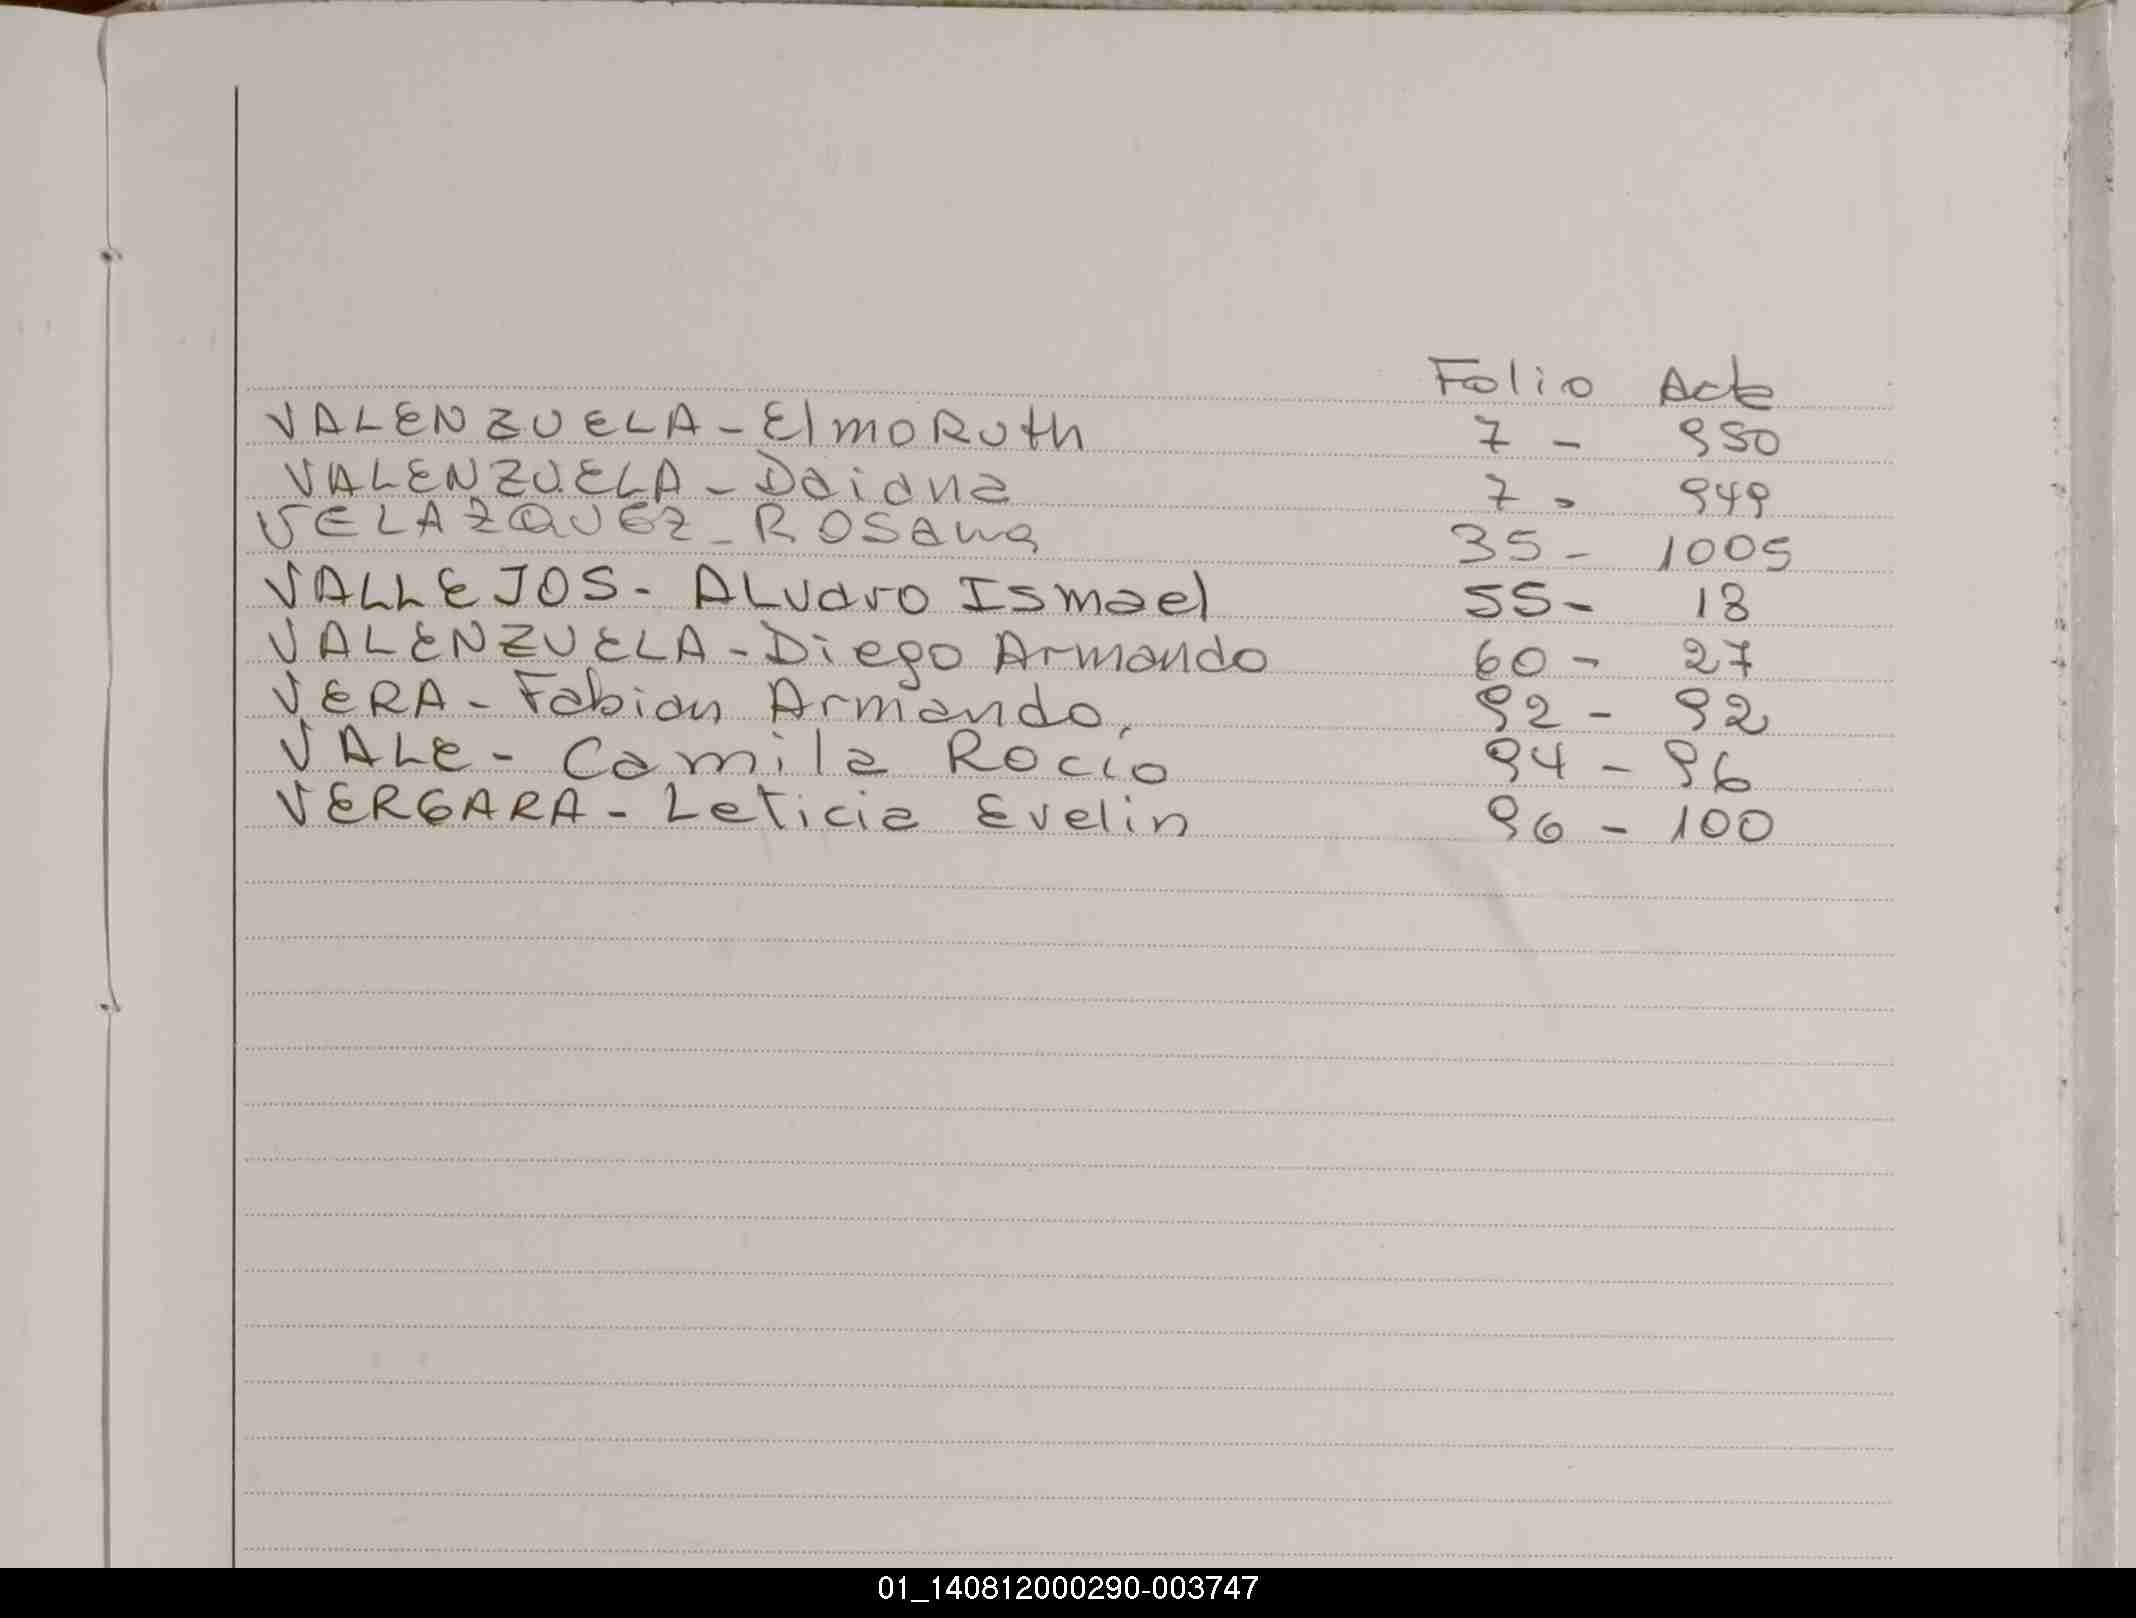 Folio Acta
VALENZUELA - Elmo Ruth 7 - 950
VALENZUELA - Daiana 7 - 949
VELAZQUEZ - ROSANA 35 - 1005
VALLEJOS - ALvaro Ismael 55 - 18
VALENZUELA - Diego Armando 60 - 27
VERA - Fabian Armando, 92 - 92
VALE - Camila Rocío 94 - 96
VERGARA - Leticia Evelin 96 - 100
01_140812000290-003747